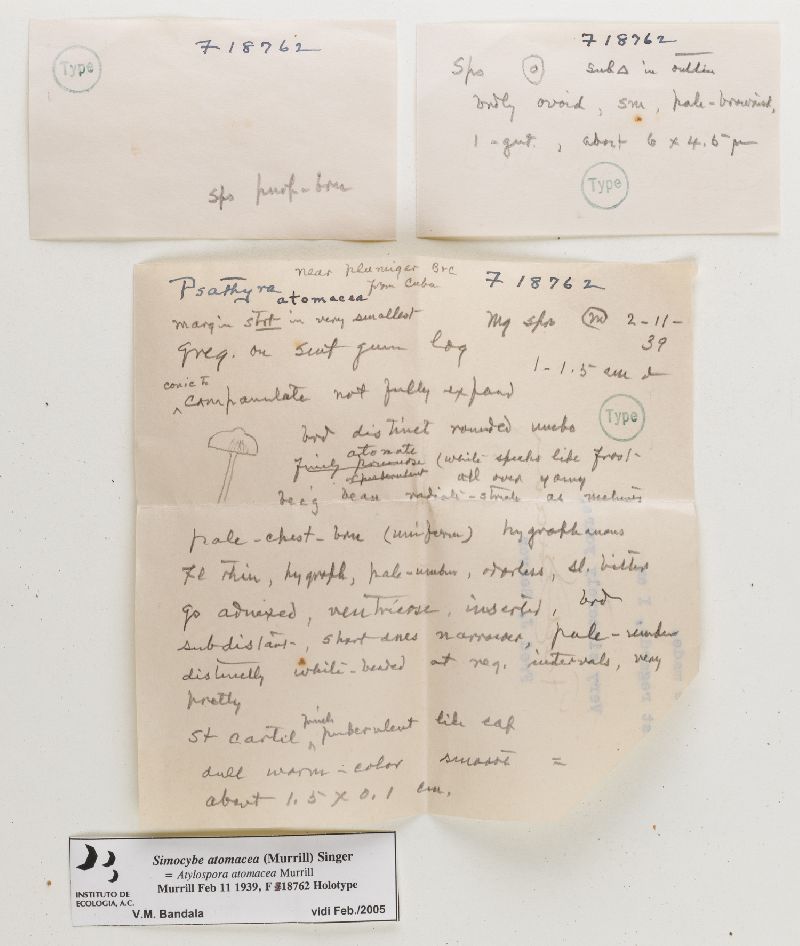 Type
F 18762
Sps purp-brn
F 18762
Sps sub△ in outline
brdly ovoid, sm, pale-brownish,
1-gut., about 6 x 4.5 μ
Type
near plumiger Brc
from Cuba
Psathyra
atomacea
F 18762
margin strt in very smallest
My sps m 2-11-
39
Greg. on swt gum log
1-1.5 cm d
conic to
campanulate not fully expand
Type
brd distinct rounded umbo
atomate
finely pruinose (white specks like frost-
or puberulent all over young
bec'g dean radiate-striate as matures
pale-chest-brn (uniform) hygrophanous
Fl thin, hygroph, pale-umber, odorless, sl. bitter
go adnexed, ventricose, inserted, brd
subdistant-, short ones narrower, pale-umber
distinctly white-beaded at reg. intervals, very
pretty
St cartil puberulent like cap
dull warm-color smooth =
about 1.5 x 0.1 cm.
Simocybe atomacea (Murrill) Singer
= Atylospora atomacea Murrill
Murrill Feb 11 1939, F 18762 Holotype
INSTITUTO DE
ECOLOGIA, A.C.
V.M. Bandala
vidi Feb./2005